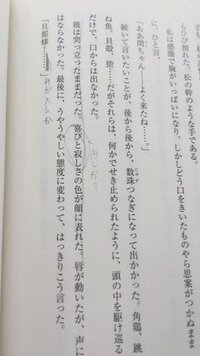 しひび割れた、松の幹のような手である。
私は感激で胸がいっぱいになり、しかしどう口をきいたものやら思案がつかぬまま
に、ひと言。
「ああ閏ちゃん――よく来たね……」
続いて言いたいことが、後から後から、数珠つなぎになって出かかった。角鶏、跳
ね魚、貝殻、猹……だがそれらは、何かでせき止められたように、頭の中を駆け巡る
だけで、口からは出なかった。
彼は突っ立ったままだった。喜びと寂しさの色が顔に表れた。唇が動いたが、声に
はならなかった。最後に、うやうやしい態度に変わって、はっきりこう言った。
「旦那様！……」